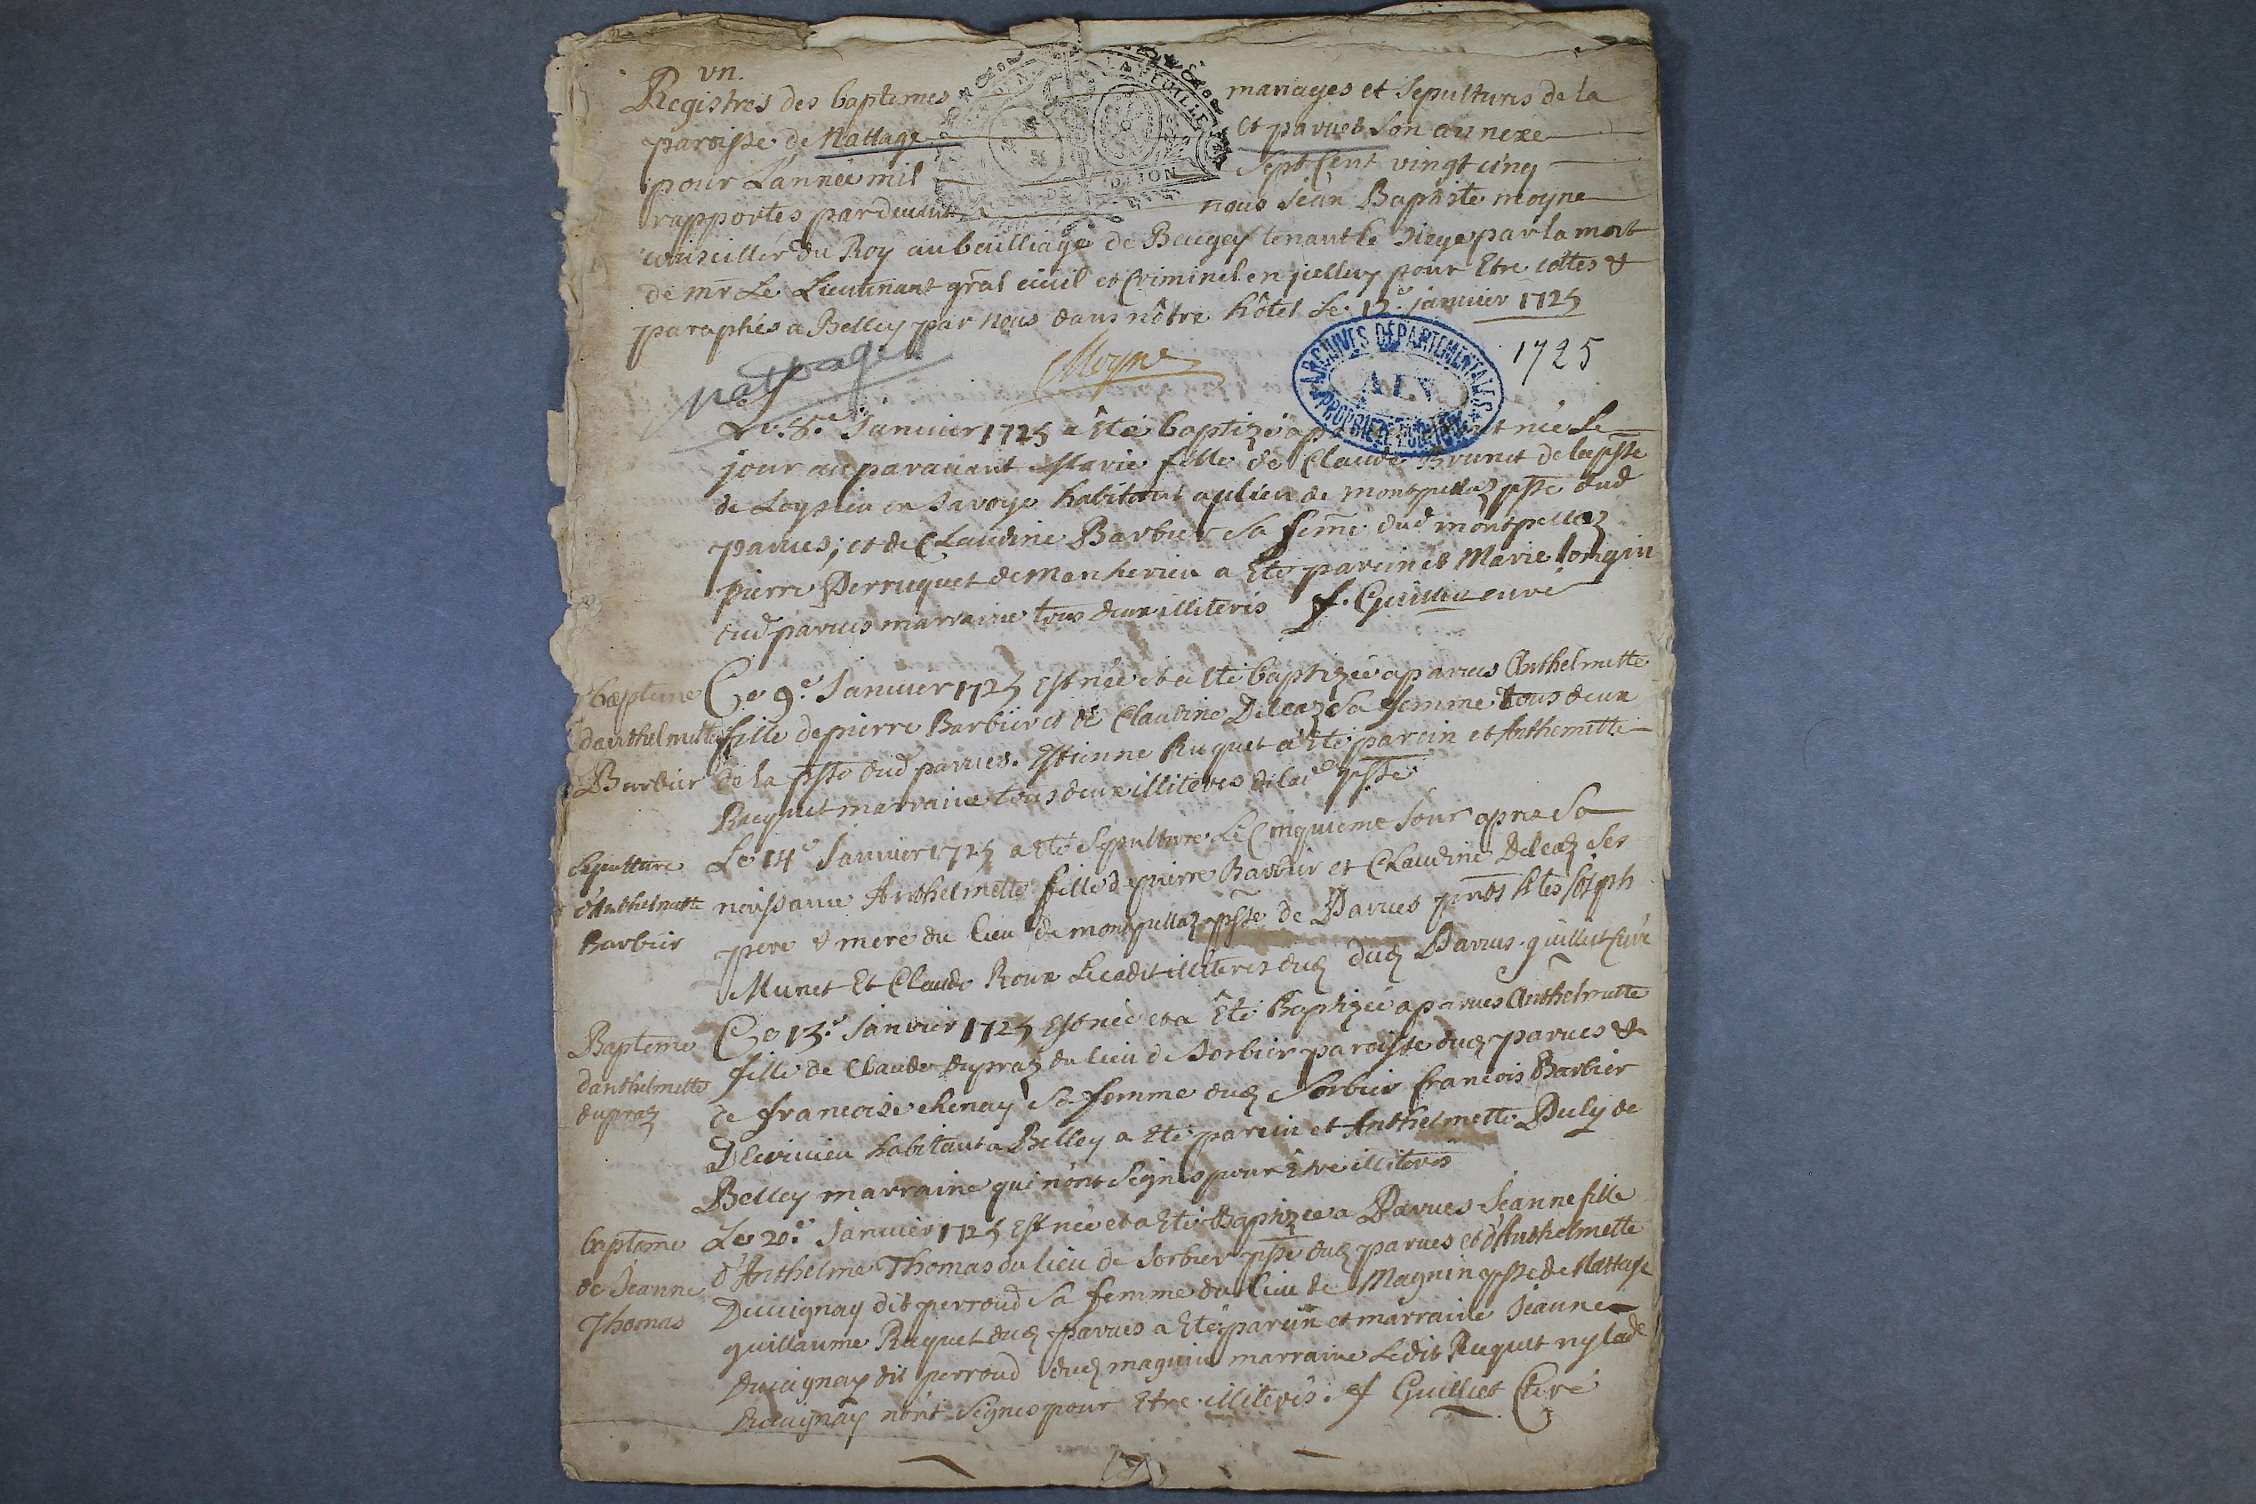 vn.
Registres des baptemes mariages et sepultures de la
paroisse de Nattage et parues son annexe
pour L'année mil sept Cent vingt cinq
rapportés pardevant nous Jean Baptiste moyne
conseiller du Roy au bailliage de Beugey tenant le siege par la mort
de mr Le Lieutenant gral civil et Criminel en jcelluy pour Etre cottés &
paraphés a Belley par nous dans nôtre hôtel Le 12e janvier 1725
Moyne
ARCHIVES DÉPARTEMENTALES
AIN
PROPRIÉTÉ PUBLIQUE
1725
nattage
Le 8e Janvier 1725 a Eté baptizé née Le
jour auparauant Marie fille de Claude Brunet de la psse
de Loysieu en Savoye habitant au lieu de montpellaz psse dud
parues; et de Claudine Barbier sa feme dud montpellaz
pierre Perruquet de Mancherieu a Eté parein et Marie longin
dud parues marraine tous deux illiterés f. Guilliet curé
Bapteme
danthelmette
Barbier
Ce 9e Janvier 1725 Est née et a Eté baptizée a parues Anthelmette
fille de pierre Barbier et de Claudine Deleaz sa femme tous deux
de la psse dud parues. Estienne Ruquet a Eté parein et Anthemette
Ruquet marraine tous deux illiterés de lad psse
Sepulture
d'Anthelmette
Barbier
Le 14e Janvier 1725 a Eté Sepulture Le Cinquieme Jour apres Sa
naissance Anthelmette fille de pierre Barbier et Claudine Deleaz ses
pere & mere du lieu de montpellaz psse de Parues pnts hes Joseph
Munet Et Claude Roux Lecadit illiterés dud Parues. guilliet Curé
Bapteme
danthelmette
dupraz
Ce 13e Janvier 1725 Est née et a Eté Baptizée a parues Anthelmette
fille de Claude dupraz du lieu de Sorbier paroisse dud parues &
de francoise chenay sa femme dud Sorbier francois Barbier
habitant a Belley a Eté parein et Anthelmette Puly de
Belley marraine qui n'ont Signés pour Etre illiterés
bapteme
de Jeanne
Thomas
Le 20e Janvier 1725 Est née et a Eté Baptizée a Parues Jeanne fille
d'Anthelme Thomas du lieu de Sorbier psse dud parues et d'Anthelmette
Duvignay dit perroud sa femme du lieu de Magnin psse de Nattage
guillaume Ruquet dud parues a Eté parein et marraine Jeanne
duvignay dit perroud dud magnin marraine Ledit Ruquet ny lade
duvignay n'ont Signés pour Etre illiterés. f Guilliet Curé